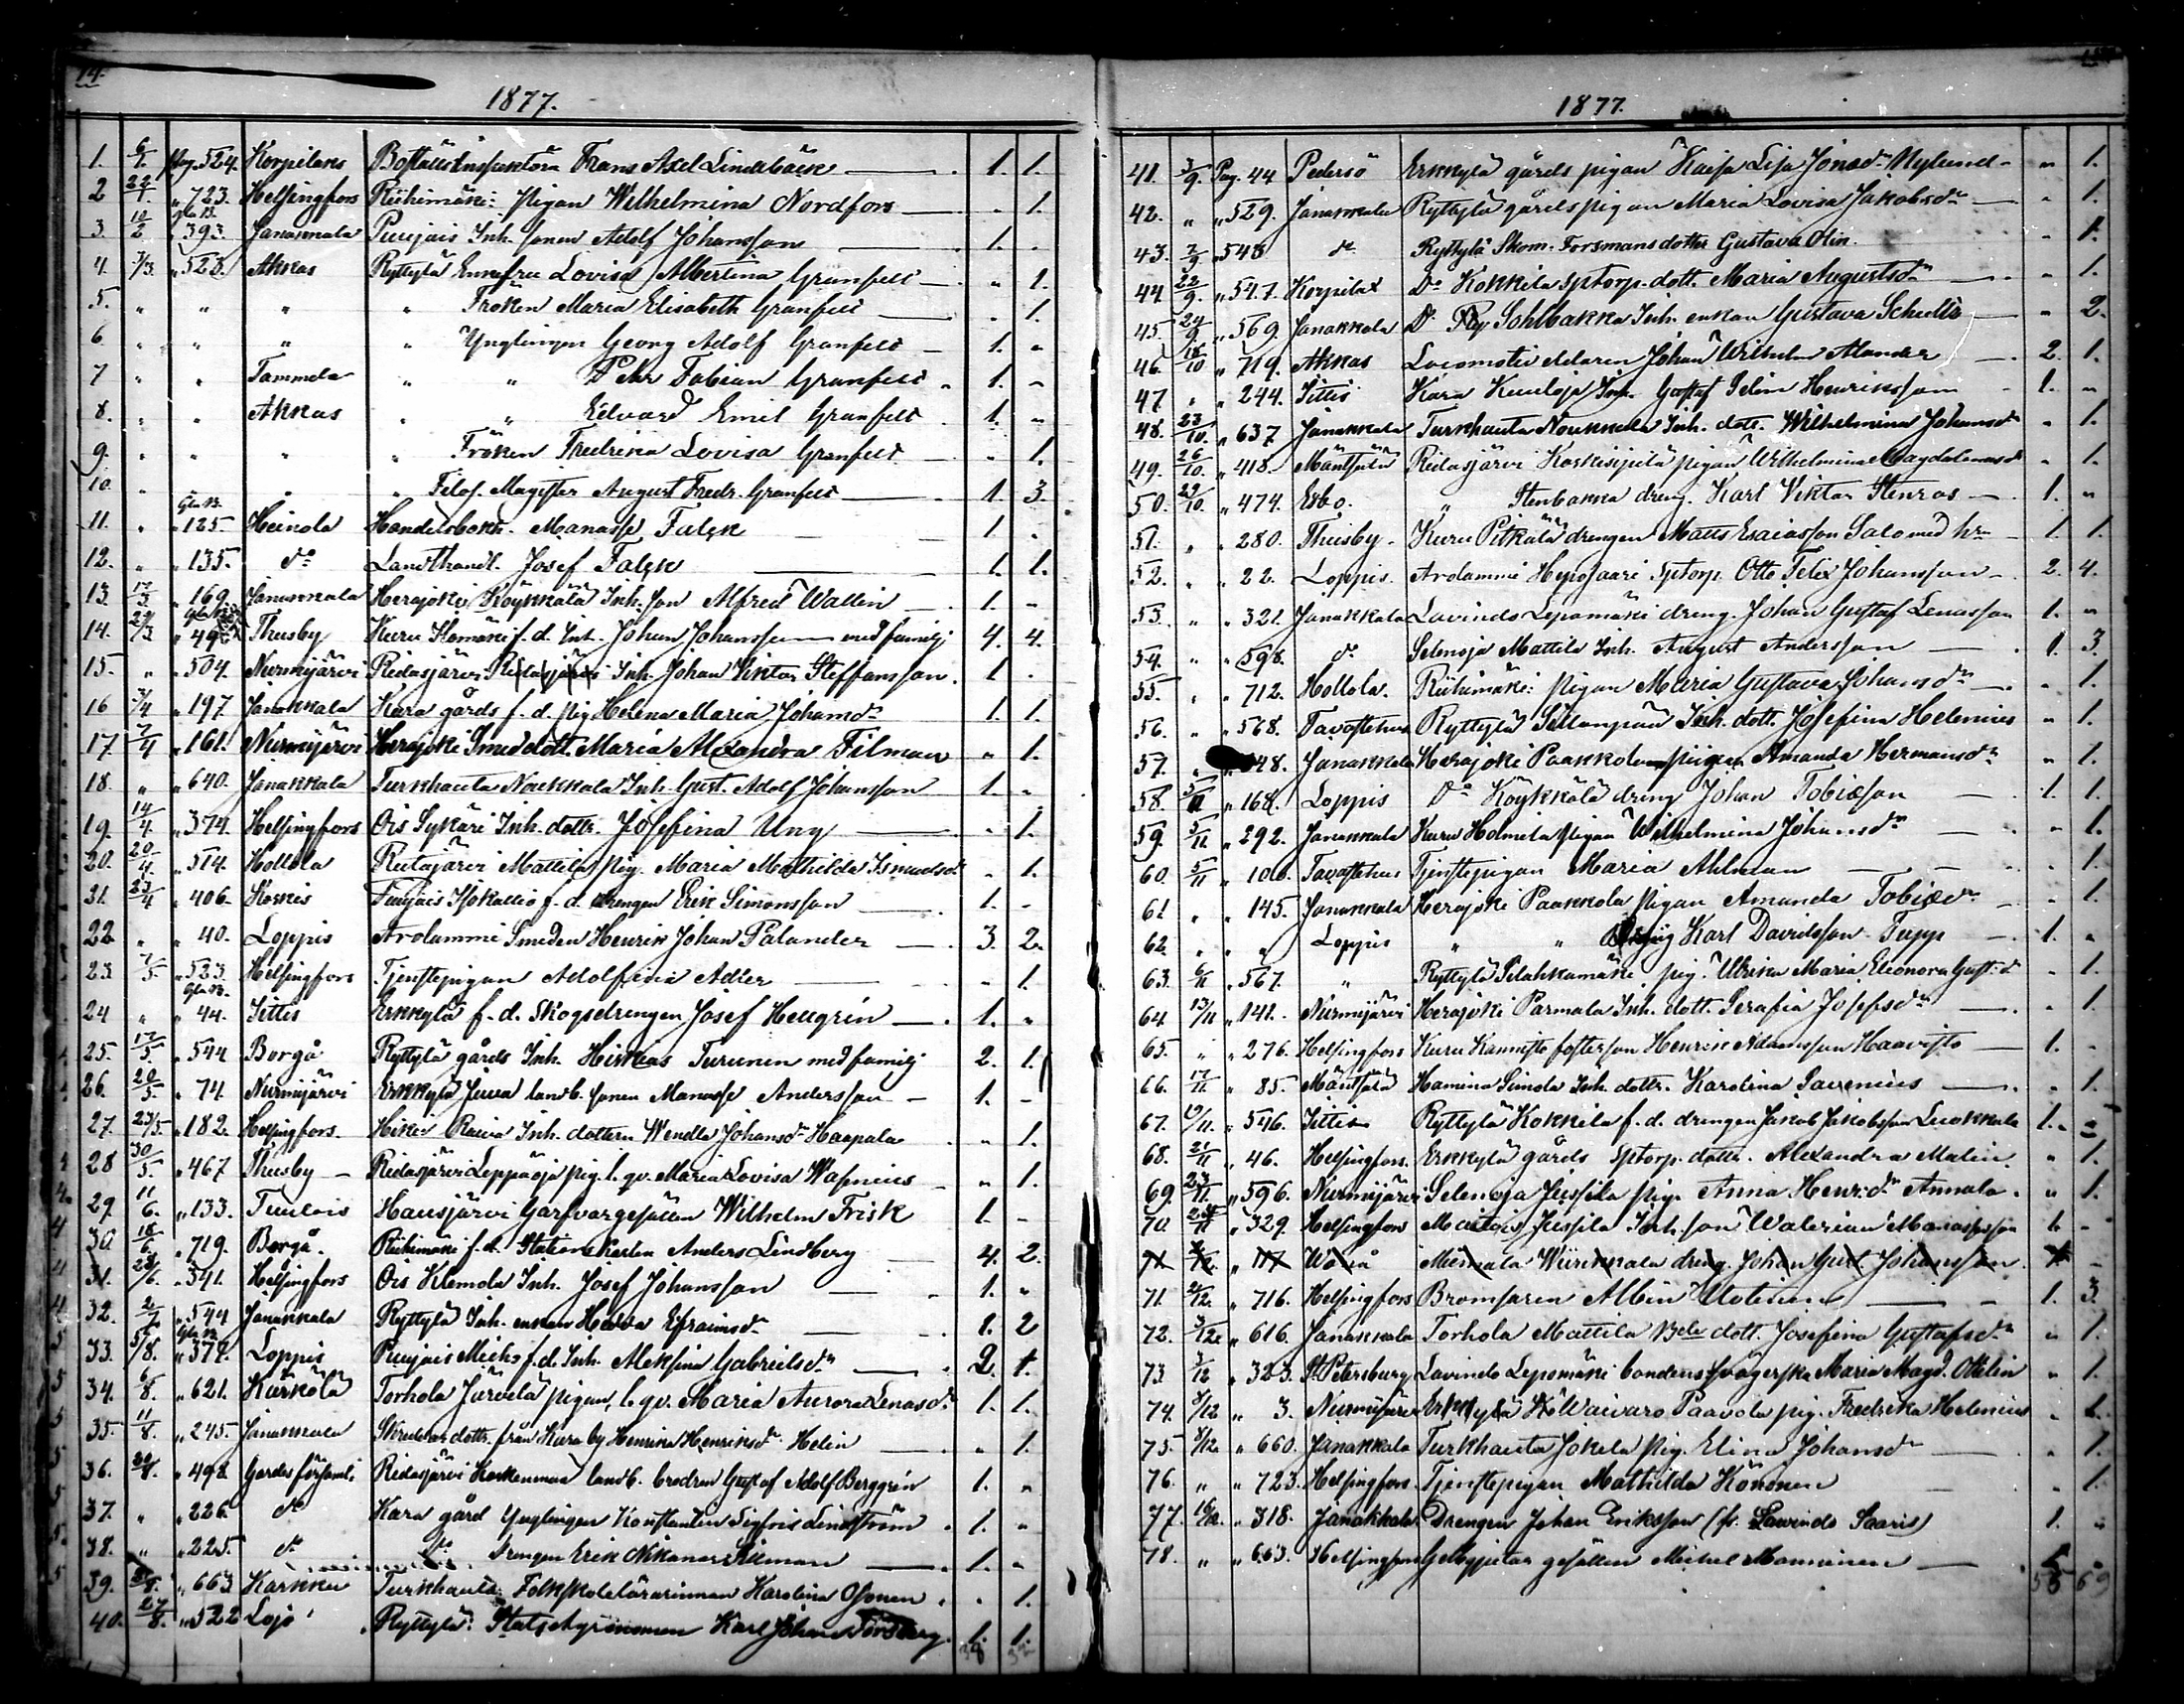 14.
1877.
1. 6/1. pag. 524. Korpilaks Boställsinspektorn Frans Axel Lindebäck 1. 1.
2 22/1. " 723. Helsingfors Riihimäki: Pigan Wilhelmina Nordfors " 1.
gla B.
3. 10/2 " 393. Janakkala Puujais Inh. sonen Adolf Johansson 1. "
4. 7/3. " 528. Akkas Ryttylä Enkefru Lovisa Albertina Granfelt " 1.
5. " " " " Fröken Maria Elisabeth Granfelt " 1.
6 " " " " Ynglingen Georg Adolf Granfelt 1. "
7 " " Tammela " " Pehr Fabian Granfelt 1. "
8. " " Akkas " " Edvard Emil Granfelt 1. "
9. " " " " Fröken Fredrika Lovisa Granfelt " 1.
10. " " " " Filos. Magister August Fredr. Granfelt 1. 3
Gla B.
11. " " 125 Heinola Handelsbokh. Manasse Falck 1 "
12. " " 135. do Landthandl. Josef Falck 1. 1.
13. 17/3. " 169. Janakkala Herajoki Köykkälä Inh. son Alfred Wallin 1. "
14. 24/3 " 49 Thusby Kuru f. d. Inh. Johan Johansson med familj 4. 4.
15. " " 504. Nurmijärvi Ridasjärvi Inh. Johan Viktor Steffansson. 1 "
16 3/4 " 197 Janakkala Kara gårds f. d. pig Helena Maria Johansdr 1. 1.
17. 7/4 " 161. Nurmijärvi Herajoki Smeddott. Maria Alexandra Filman " 1.
18. " " 640. Janakkala Turkhauta Noukkala Inh. Gust. Adolf Johansson 1. "
19. 14/4. " 374. Helsingfors Ois Sykäri Inh. dottr. Josefina Ung " 1.
20. 20/4. " 514. Hollola Ridasjärvi Mattila pig. Maria Mathilda " 1.
21. 23/4 " 406. Koskis Puujais Isokallio f. d. drengen Erik Simonsson 1. "
22 " " 40. Loppis Arolammi Smeden Henrik Johan Palander 3. 2.
23. 7/5. " 523. Helsingfors Tjenstepigan Adolfina Adler " 1.
Gla B.
24 " " 44. Jittis Erkkylä f. d. Skogsdrengen Josef Hellgrén 1. "
25. 17/5. " 544 Borgå Ryttylä gårds Inh. Turunen med familj 2. 1.
26. 20/5. " 74. Nurmijärvi Erkkylä Juva landb. sonen Manasse Andersson 1. "
27. 23/5. " 182. Helsingfors. Hikiä Inh. dottern Wendla Johansdr Haapala " 1.
28 30/5. " 467 Thusby Ridasjärvi Leppäoja pig. l. qv. Maria Lovisa Wasenius " 1.
29. 11/6. " 133. Tuulois Hausjärvi Garfvargesällen Wilhelm Frisk 1. "
30. 18/6. " 719. Borgå. Riihimäki f. d. Stationskarlen Anders Lindberg 4. 2.
31. 28/6. " 341. Helsingfors Ois Klemola Inh. Josef Johansson 1. "
32. 2/7 " 544 Janakkala Ryttylä Inh. enkan Hedda Efraimsdr 1. 2
Gla B.
33. 5/8. " 372. Loppis Puujais f. d. Inh. Gabrielsdr 2. 1.
34. 6/8. " 621. Kärkölä Torhola Järvelä pigan, l. qv. Maria Aurora Lenasdr 1. 1.
35. 11/8. " 245. Janakkala dottr. från Kara by Henrika Henriksdr Helin " 1.
36. " 498. Gardes församl. Ridasjärvi landb. brodren Gustaf Adolf Berggrén 1. "
37. " " 226. do Kara gård Ynglingen Konstantin Sigfrid Lindström 1. "
38. " " 225. do do drengen Erik Nikanor 1. "
39. " 663 Karkku Turkhauta: Folkskolelärarinnan Karolina " 1.
40. 27/8. " 522 Lojo Ryttylä: Statsagronomen Karl Johan Forsberg. 1. 1.
1877.
41. 3/9. Pag. 44 Pedersö Erkkylä gårds pigan Kaisa Lisa Jonaedr Nylund " 1.
42. " " 529. Janakkala Ryttylä gårds pigan Maria Lovisa Jakobsdr " 1.
43. 7/9. " 548 do Ryttylä Skom. Forsmans dotter Gustava Olin. " 1.
44. 22/9. " 547. Korpilax Do Kokkila sptorp. dott. Maria Augustsdr " 1.
45. 24/9 " 569. Janakkala Do Sohlbakka Inh. enkan Gustava Schultz " 2.
46. 18/10 " 719. Akkas Locomotiveldaren Johan Wilhelm Alander 2. 1.
47. " " 244. Jittis Kara Inh. Gustaf Selim Henriksson 1. "
48. 23/10. " 637 Janakkala Turkhauta Noukkala Inh. dott. Wilhelmina Johansdr " 1.
49. 26/10. " 418. Mäntsälä Ridasjärvi pigan Wilhelmina Magdalenasdr " 1.
50. 29/10. " 474. Esbo. " Stenbakka dreng. Karl Viktor Stenros 1. "
51. " " 280. Thusby. Kuru Pitkälä drengen Matts Esaiasson Salo med hr 1. 1.
52. " " 22. Loppis. Arolammi Hyposaari Sptorp. Otto Felix Johansson 2. 4.
53. " " 321. Janakkala Lavinto Leposmäki dreng. Johan Gustaf Lenasson 1. "
54. " " 598. do Selenoja Mattila Inh. August Andersson 1. 3.
55. " " 712. Hollola. Riihimäki: pigan Maria Gustava Johansdr " 1.
56. " " 568. Tavastehus Ryttylä Sillanpää Inh. dott. Josefina Helenius " 1.
57. " 48. Janakkala Herajoki Paakkola pigan Amanda Hermansdr " 1.
58. 5/11 " 168. Loppis Do Köykkälä dreng Johan Tobiæson 1. 1.
59. 5/11. " 292. Janakkala Kuru Holmila pigan Wilhelmina Johansdr " 1.
60. 5/11 " 100. Tavastehus Tjenstepigan Maria Ahlman " 1.
61 " " 145. Janakkala Herajoki Paakkola pigan Amanda Tobiædr " 1.
62. " " " Loppis " " Karl Davidsson Tupp 1. "
63. 6/11 " 567. " Ryttylä Silahkamäki pig. Ulrika Maria Eleonora Gust:dr " 1.
64. 13/11 " 141. Nurmijärvi Herajoki Parmala Inh. dott. Serafia Josefsdr " 1.
65. " " 276. Helsingfors Kuru Kannisto fosterson Henrik Adamsson Haavisto 1. "
66. 17/11 " 85. Mäntsälä Hamina Simola Inh. dottr. Karolina Savenius " 1.
67. 19/11. " 546. Jittis Ryttylä Kokkila f. d. drengen Jakob Jakobsson Luokkala 1. "
68. 21/11 " 46. Helsingfors. Erkkylä gårds Sptorp. dottr. Alexandra Malin. " 1.
69. 23/11. " 596. Nurmijärvi Selenoja Jussila pig. Anna Henr:dr Annala. " 1.
70. " 329. Helsingfors Jussila Inh. son Walerian Manassesson 1. "
dreng. Johan Gust. Johansson.
71. 2/12. " 716. Helsingfors Bromsaren Albin 1. 3.
72. 3/12. " 616. Janakkala Torhola Mattila dott. Josefina Gustafsdr " 1.
73 3/12 " 323. St Petersburg Lavinto Leposmäki bondens svägerska Maria Magd. Ottelin " 1.
74. 8/12 " 3. Nurmijärvi Waivaro Paavola pig. Fredrika Helenius " 1.
75. 8/12 " 660. Janakkala Turkhauta Jokela pig. Elina Johansdr " 1.
76. " " 723. Helsingfors. Tjenstepigan Mathilda Könönen " 1.
77. 16/12. " 318. Janakkala. Drengen Johan Eriksson (fr. Lavindo Saaris) 1. "
78. " " 663. Helsingfors gesällen Mikael Manninen 1. "
55 69